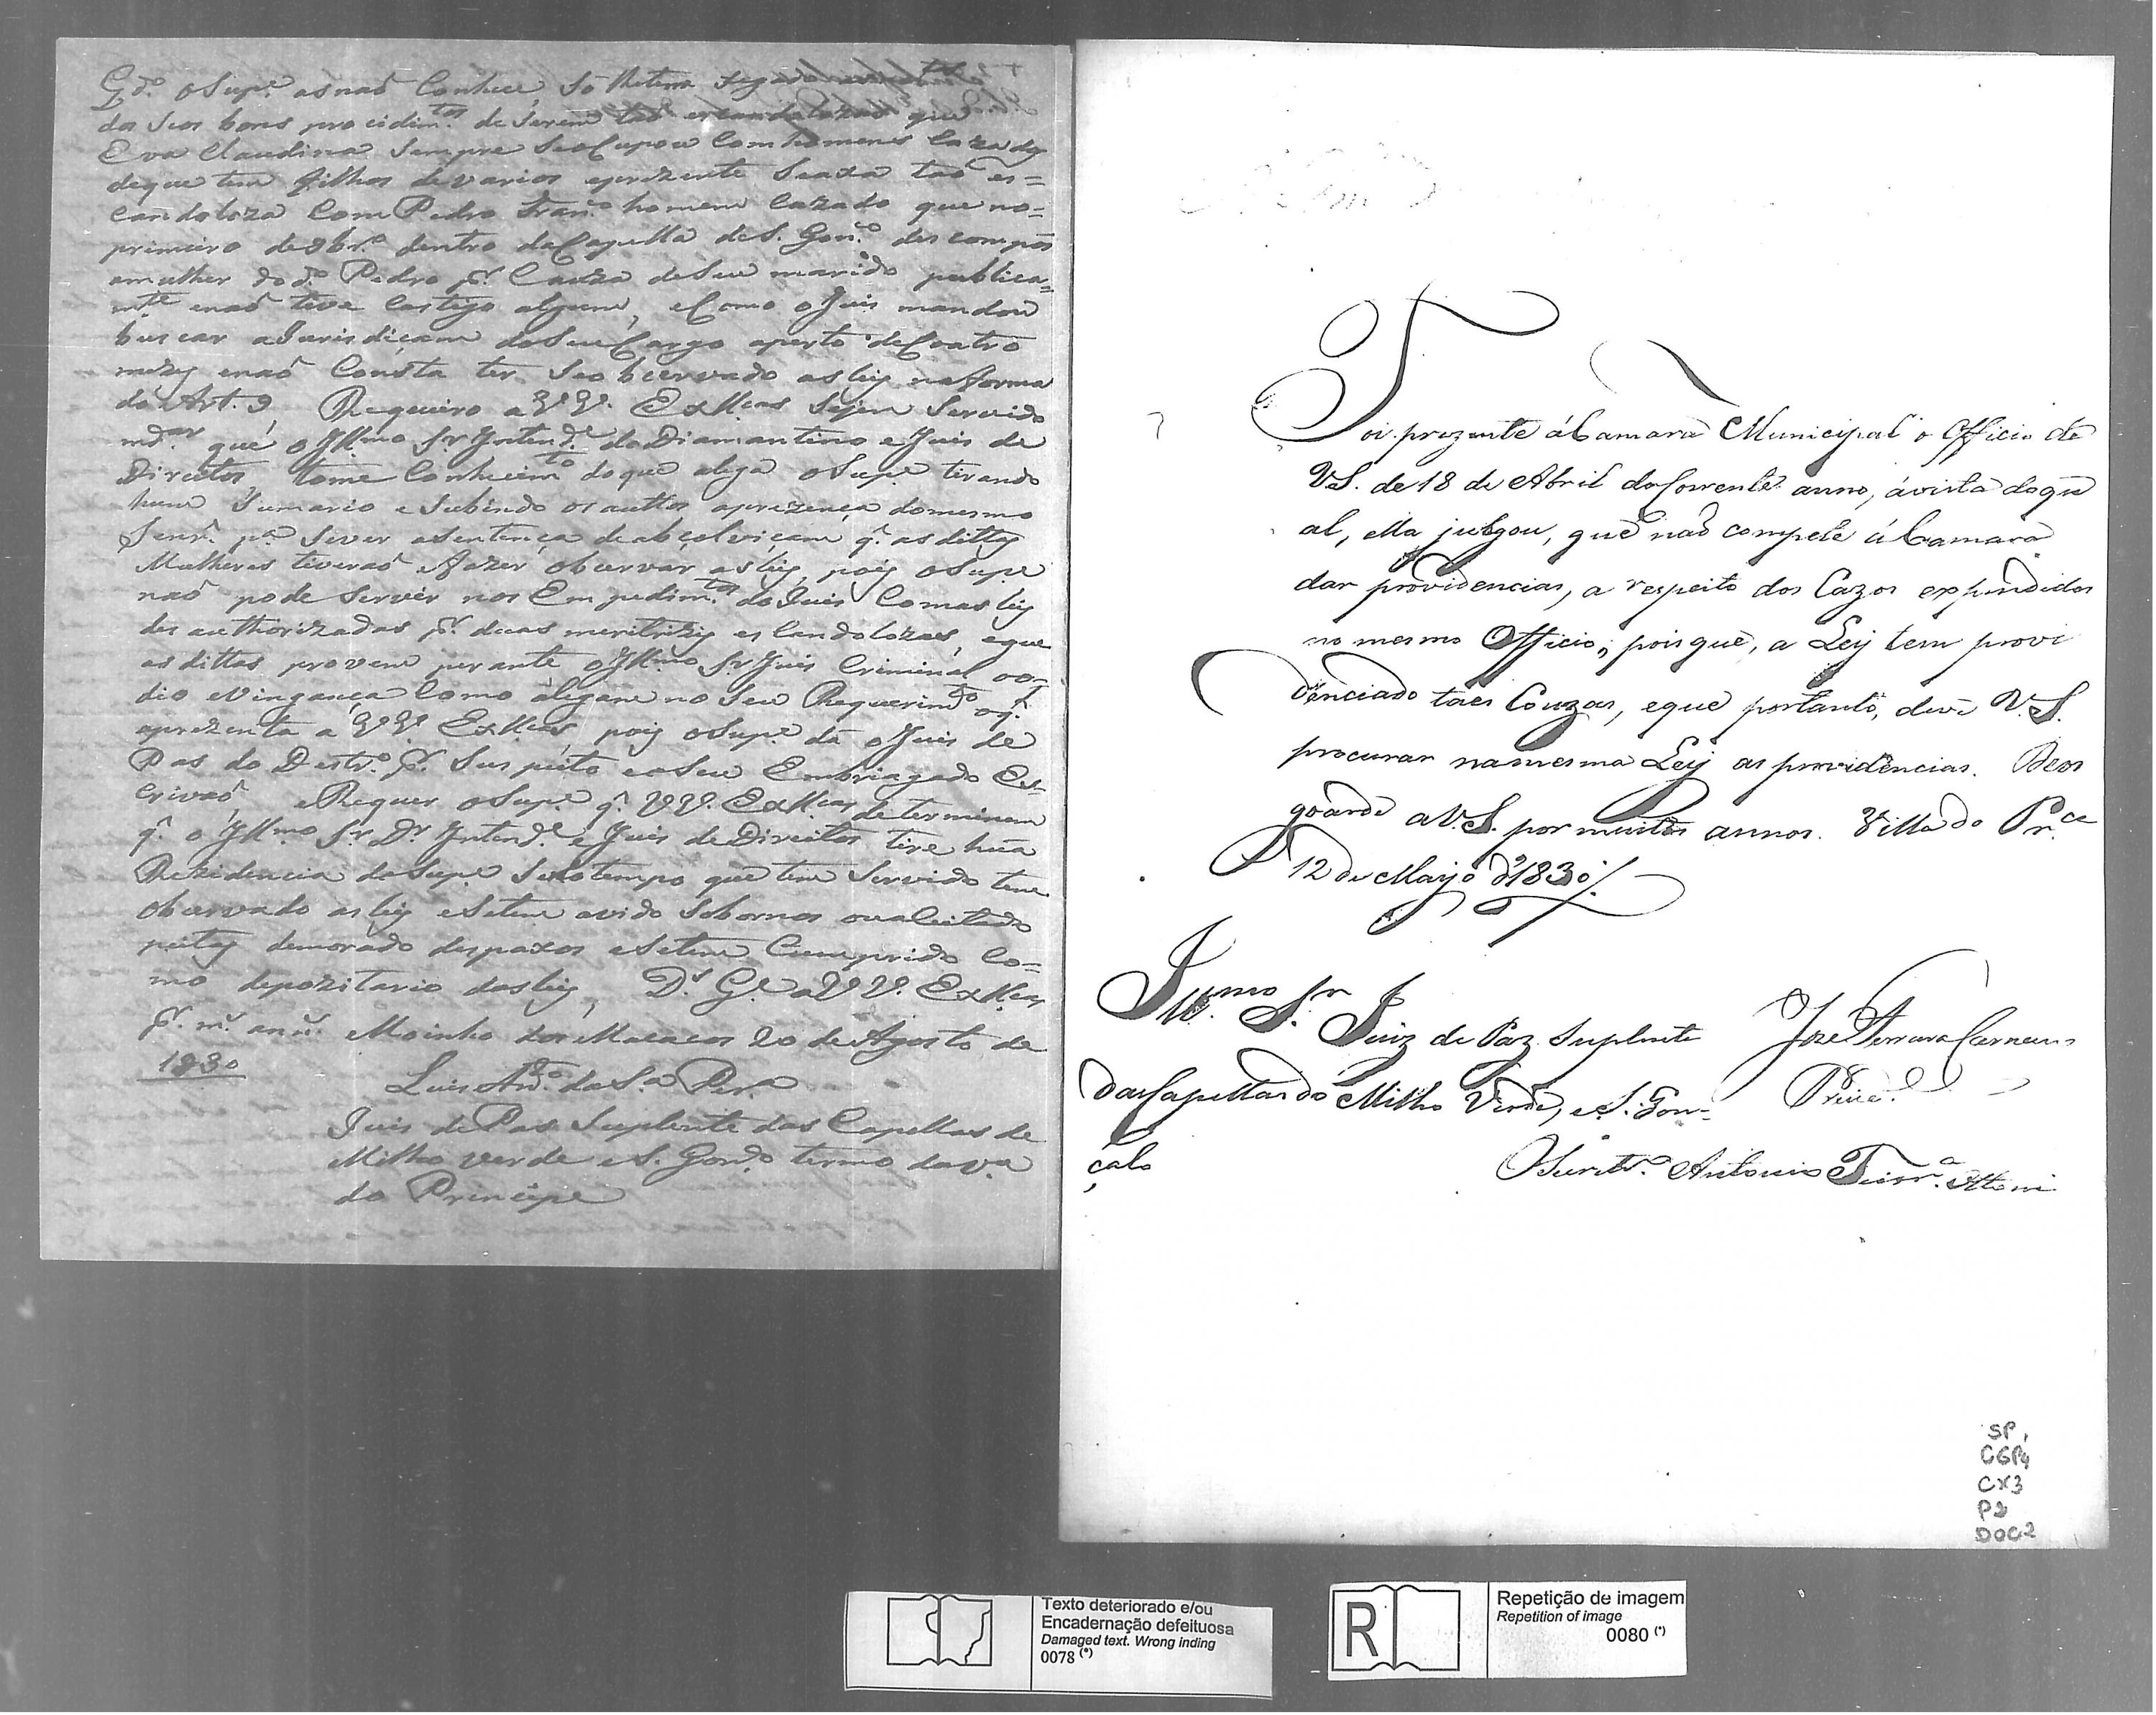 G.do o Sup.e as naõ Conhece, So
dos Seos bons procidim.tos de Serem taõ escandalozas que
Eva Claudina Sempre Seocupou Com homens Cazados
deque tem filhos de varios eprezente Seaxa taõ es=
candoloza Com Pedro Fran.co homem Cazado que no=
primeiro de 9br.o dentro daCapella de S. Gon.o des compôs
amulher do d.o Pedro p.r Cauza deSeu marido publica=
m.te enaõ teve Castigo algum, eComo oJuis mandou
buscar aJurisdiçam doSeuCargo aperto deCoatro
mezes enaõ Consta ter Seobcervado asleys naforma
do Art. 9 Requeiro a VV. Ex.cas Sejão Servido
md.ar que o Ill.mo Sr. Intend.e do Diamantino e Juis de
Direitos, tome Conhecim.to doque alega oSup.e tirando
hum Sumario eSubindo os auttos aprezença domesmo
Senr. p.a Sever aSentença deabçolviçam q.e as dittas
Mulheres tiveraõ efazer obcervar asleys, pois oSup.e
naõ pode Servir nos Empedim.tos do Juis Com as leys
des authorizadas p.r duas meritrizes escandolozas, eque
as dittas provem perante o Ill.mo Sr. Juis Criminal oo=
dio evingança Como alegam no Seu Requerim.to oq.l
aprezenta a VV. Ex.cas, pois oSup.e dá oJuis de
Pas do Destr.o p.r Suspeito eaoSeu Embriagado Es=
crivaõ, eRequer oSup.e q.e VV. Ex.cas determinem
q.e o Ill.mo Sr. Dr. Intend.e e Juis deDireitos tire húa
Rezidencia doSup.e Senotempo que tem Servido tem
obcervado as leys eSetem avido Sobornos ouaCeitado
peitas demorado despaxos eSetem Cumprido Co=
mo depozitario dasleys, D.s G.e a VV. Ex.cas
p.r m.s an.s Moinho dos Macacos 20 de Agosto de
1830
Luis An.to da S.a Per.a
Juis dePas Suplente das Capellas de
Milho verde e S. Gon.o termo dav.a
do Principe
Foi prezente áCamara Municipal o Officio de
V.S. de 18 de Abril doCorrente anno, ávista doqu
al, ella julgou, que naõ compete áCamara
dar providencias, a respeito dos Cazos expendidos
no mesmo Officio; pois que, a Ley tem provi
denciado taes Couzas, eque portanto, deve V.S.
procurar namesma Ley as providencias. Deos
guarde aV.S. por muitos annos. Villa do Pr.ce
12 de Mayo d'1830/.
Ill.mo Sr. Juiz de Paz Suplente
das Capellas do Milho Verde, e S. Gon=
çalo
Joze Ferreira Carneiro
Prez.e
OSecretr.o Antonio
SP,
CGP4
CX3
P2
DOC2
Texto deteriorado e/ou
Encadernação defeituosa
Damaged text. Wrong inding
0078 (*)
R
Repetição de imagem
Repetition of image
0080 (*)